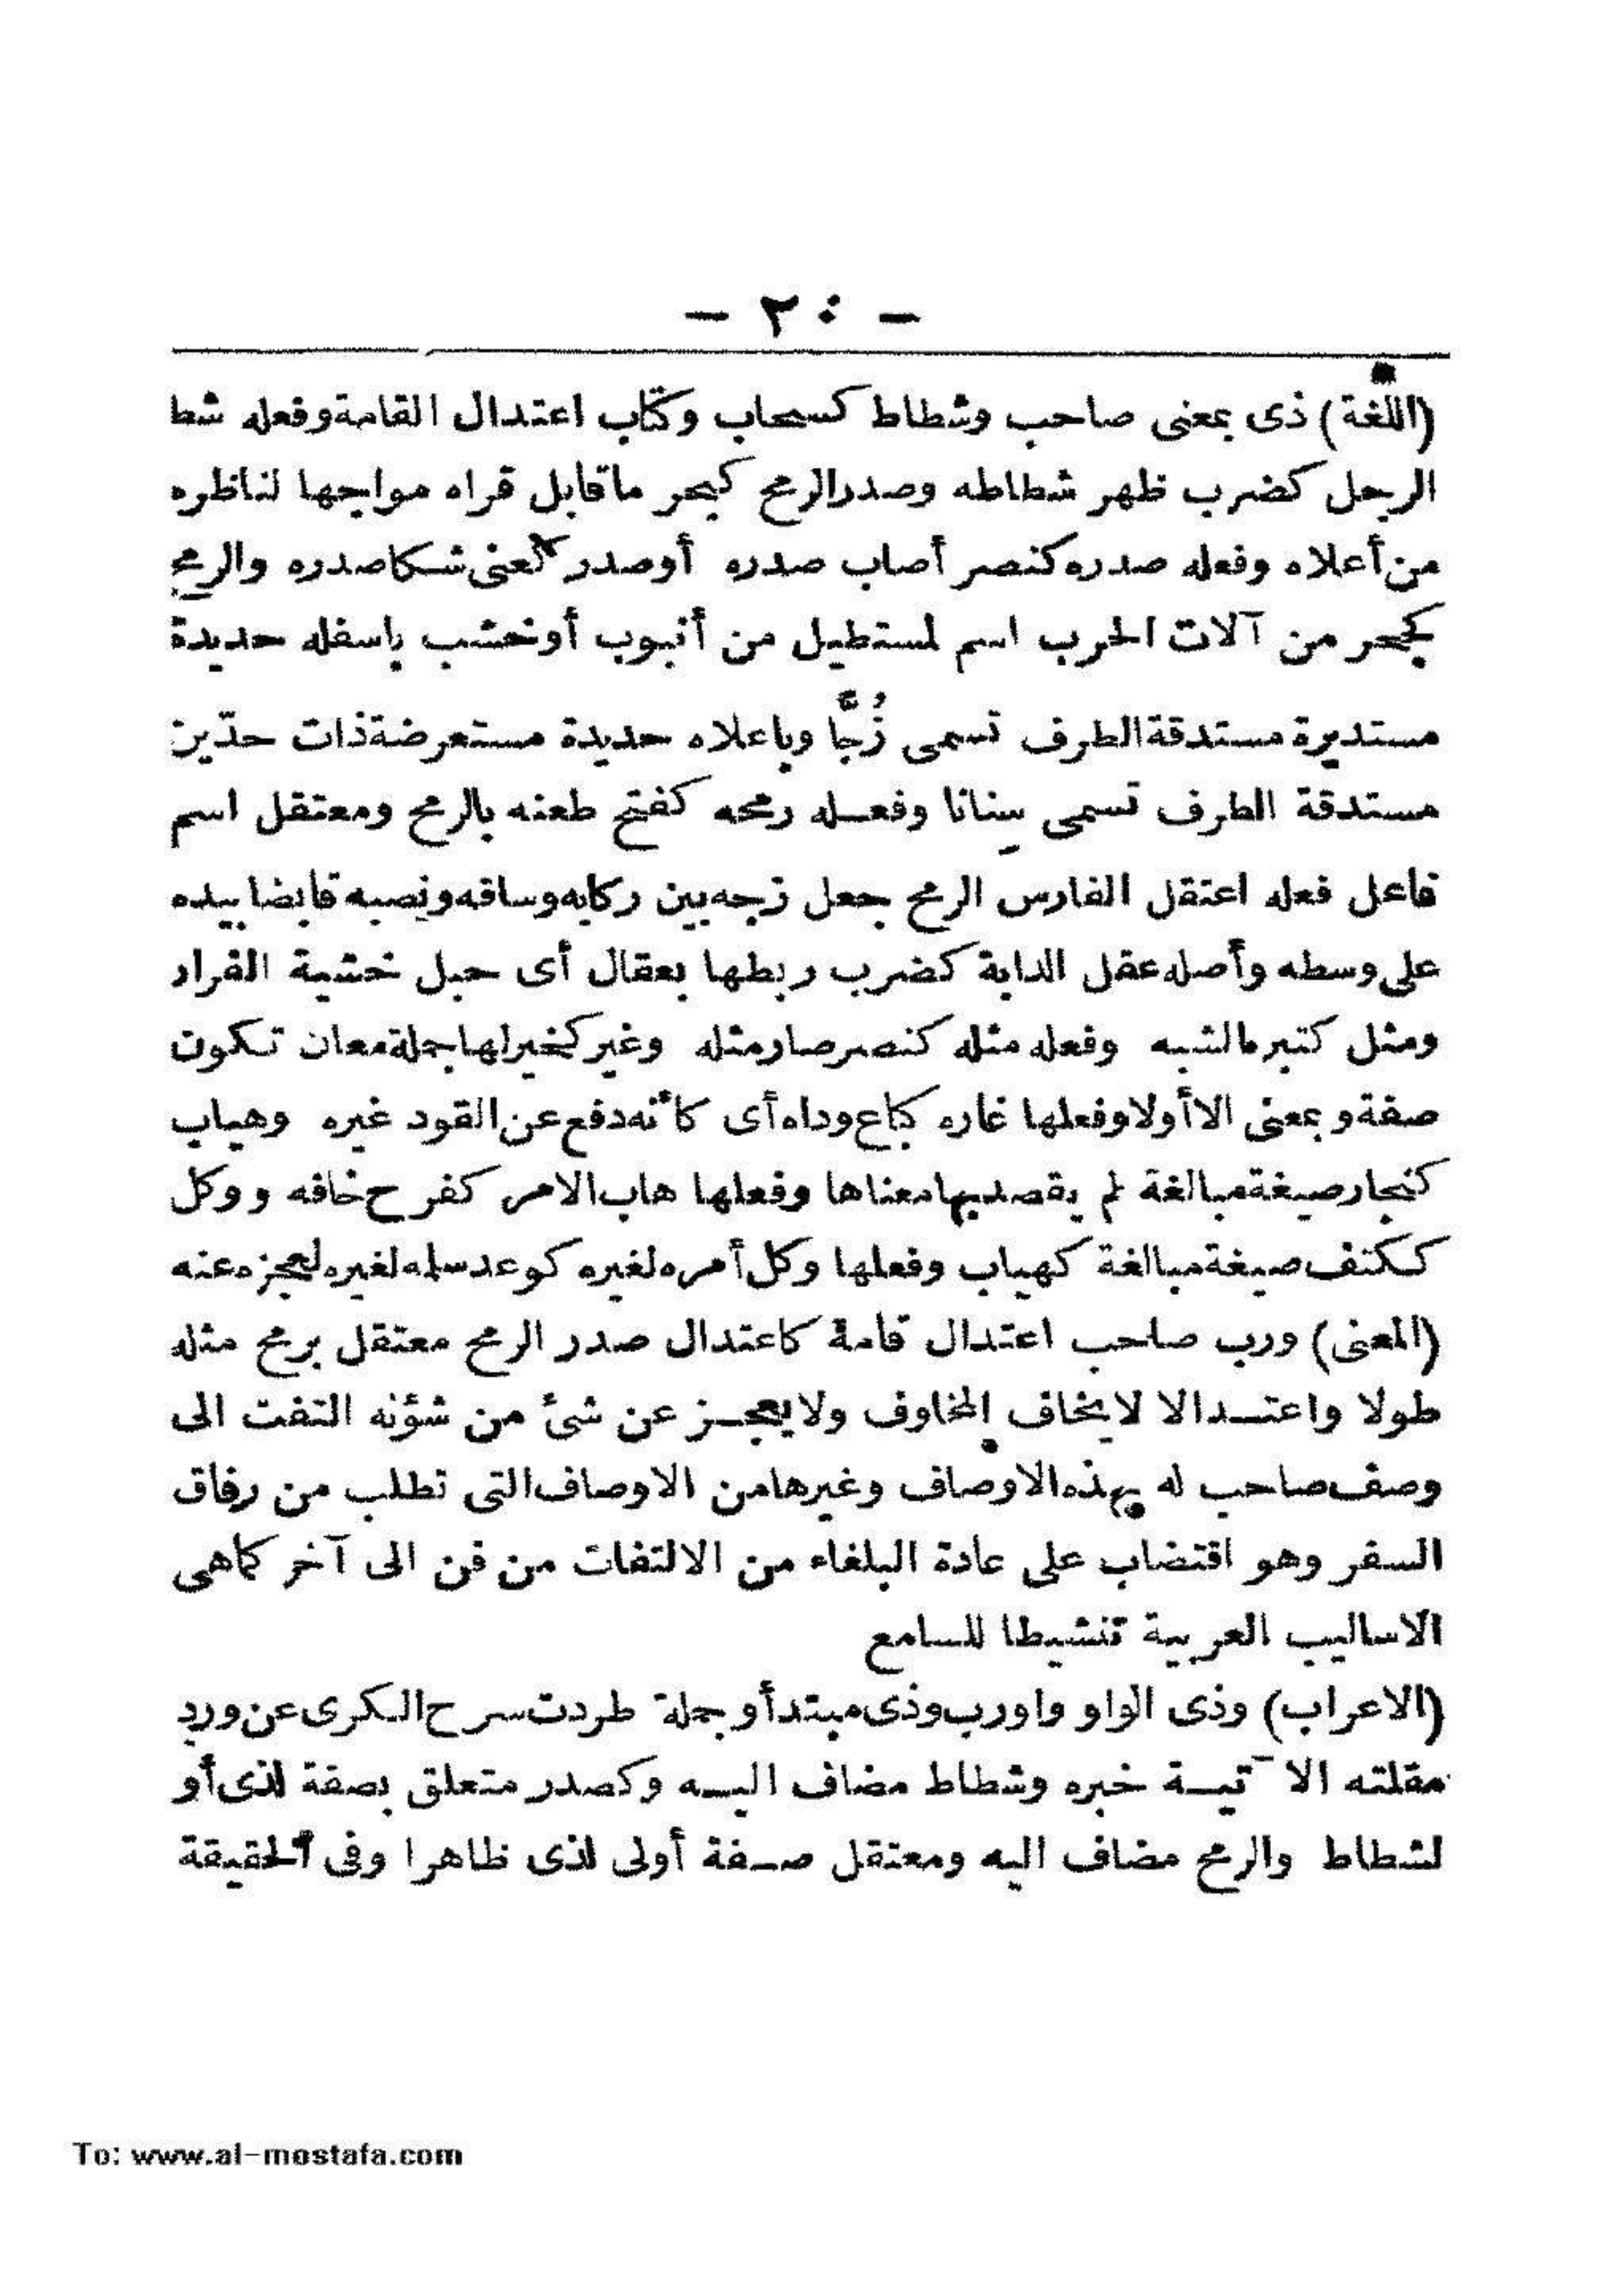 — ٢٠ —
(اللغة) ذى بمعنى صاحب وشطاط كسحاب وكتاب اعتدال القامة وفعله شط
الرجل كضرب ظهر شطاطه وصدر الرمح كبحر ما قابل قراه مواجها لناظره
من أعلاه وفعله صدره كنصر أصاب صدره أو صدر كعنى شكا صدره والرمح
كجحر من آلات الحرب اسم لمستطيل من أنبوب أو خشب باسفله حديدة
مستديرة مستدقة الطرف تسمى زُجًّا وباعلاه حديدة مستعرضة ذات حدّين
مستدقة الطرف تسمى سِنانا وفعله رمحه كفتح طعنه بالرمح ومعتقل اسم
فاعل فعله اعتقل الفارس الرمح جعل زجه بين ركابه وساقه ونصبه قابضا بيده
على وسطه وأصله عقل الدابة كضرب ربطها بعقال أى حبل خشية الفرار
ومثل كتبر ما الشبه وفعله مثله كنصر صار مثله وغير كخير لها جملة معان تكون
صفة وبمعنى الا أولا وفعلها غاره كباع وداه أى كأنه دفع عن القود غيره وهياب
كنجار صيغة مبالغة لم يقصد بها معناها وفعلها هاب الامر كفرح خافه ووكل
ككتف صيغة مبالغة كهياب وفعلها وكل أمره لغيره كوعد سلمه لغيره لعجزه عنه
(المعنى) ورب صاحب اعتدال قامة كاعتدال صدر الرمح معتقل برمح مثله
طولا واعتدالا لا يخاف المخاوف ولا يعجز عن شئ من شؤنه التفت الى
وصف صاحب له بهذه الاوصاف وغيرها من الاوصاف التى تطلب من رفاق
السفر وهو اقتضاب على عادة البلغاء من الالتفات من فن الى آخر كما هى
الاساليب العربية تنشيطا للسامع
(الاعراب) وذى الواو واو رب وذى مبتدأ وجملة طردت سرح الكرى عن ورد
مقلته الآتية خبره وشطاط مضاف اليه وكصدر متعلق بصفة لذى أو
لشطاط والرمح مضاف اليه ومعتقل صفة أولى لذى ظاهرا وفى الحقيقة
To: www.al-mostafa.com